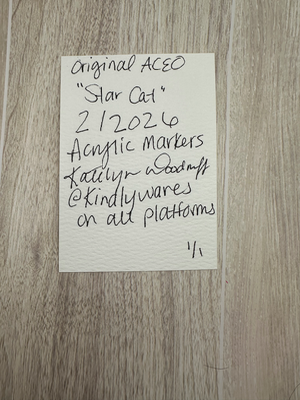 Original ACEO
"Star Cat"
2/2026
Acrylic Markers
Katilyn Woodruff
@Kindlywares
on all platforms
1/1